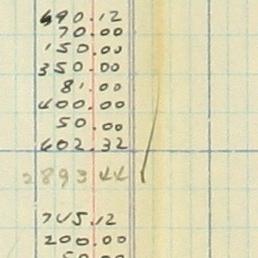 690.12
70.00
150.00
350.00
81.00
400.00
50.00
602.32
2893 44
745.12
200.00